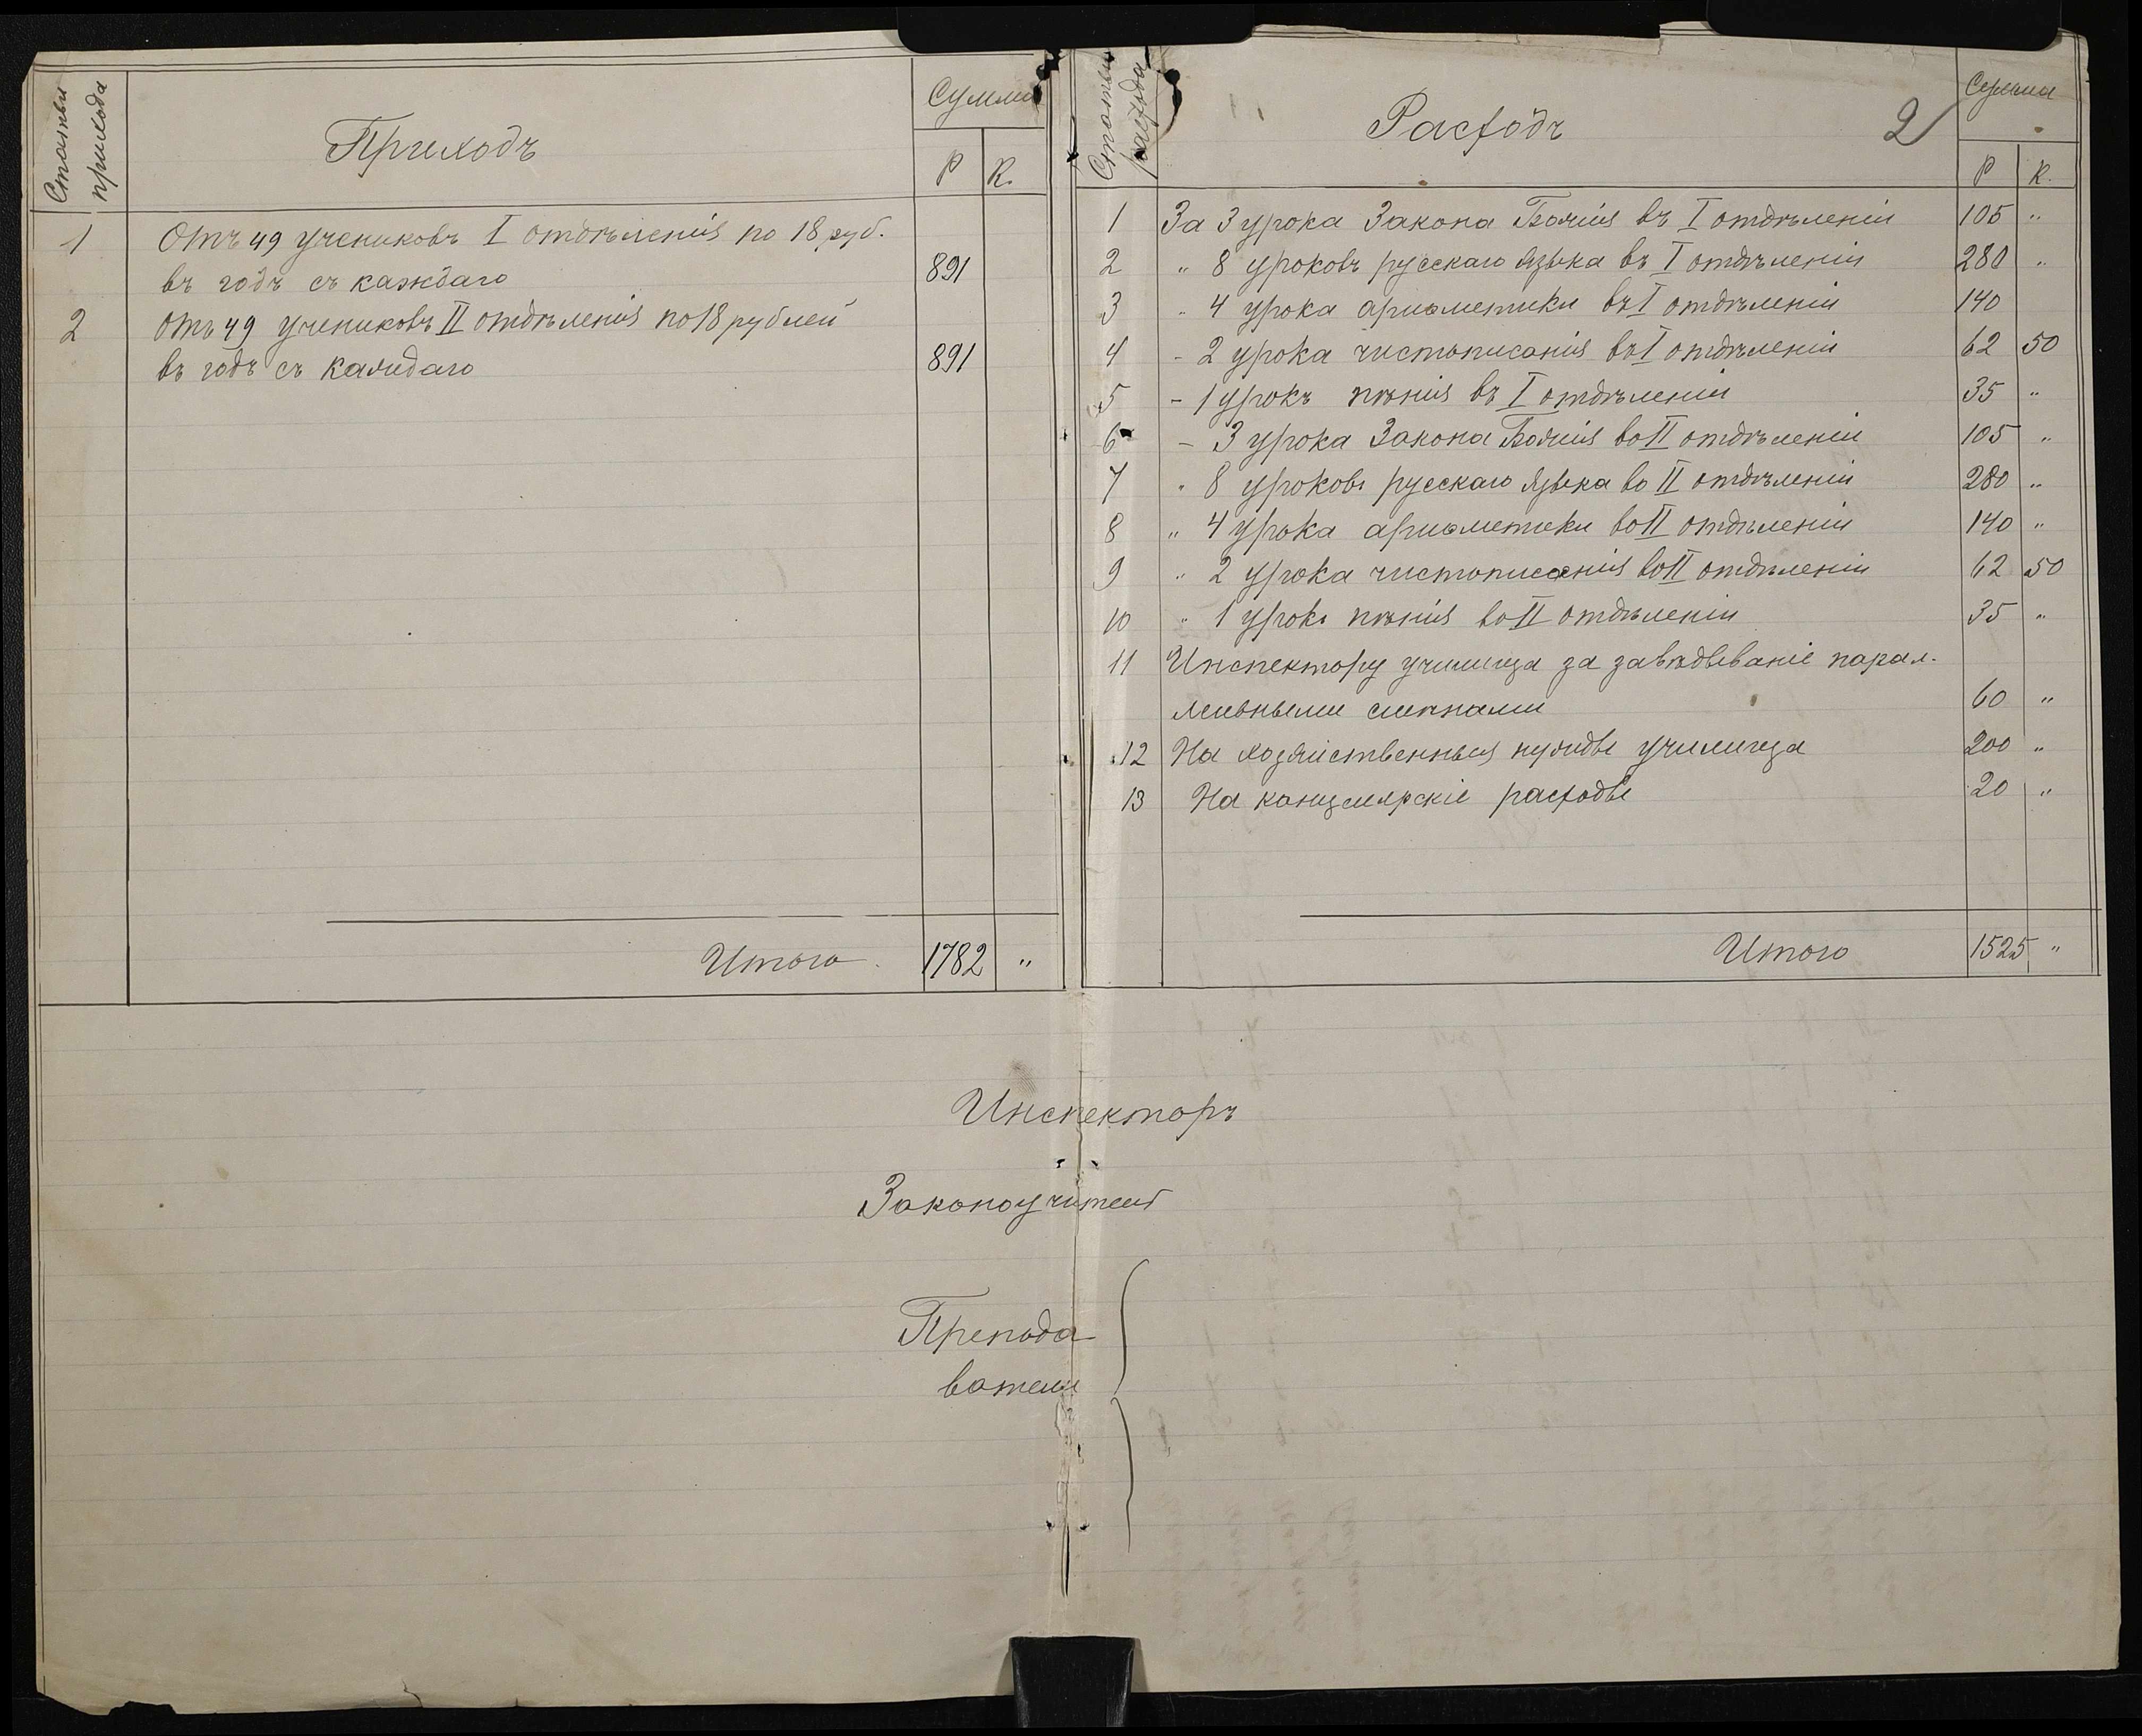 Статьи прихода
Приходъ
Сумма
Р К.
1 Отъ 49 учениковъ I отдѣленія по 18 руб.
въ годъ съ каждаго 891
2 Отъ 49 учениковъ II отдѣленія по 18 рублей
въ годъ съ каждаго 891
Итого 1782 "
Статьи расхода
Расходъ
2
Сумма
Р К.
1 За 3 урока Закона Божія въ I отдѣленіи 105 "
2 " 8 уроковъ русскаго языка въ I отдѣленіи 280 "
3 " 4 урока ариѳметики въ I отдѣленіи 140
4 - 2 урока чистописанія въ I отдѣленіи 62 50
5 - 1 урокъ пѣнія въ I отдѣленіи 35 "
6 - 3 урока Закона Божія во II отдѣленіи 105 "
7 " 8 уроковъ русскаго языка во II отдѣленіи 280 "
8 " 4 урока ариѳметики во II отдѣленіи 140 "
9 " 2 урока чистописанія во II отдѣленіи 62 50
10 " 1 урокъ пѣнія во II отдѣленіи 35 "
11 Инспектору училища за завѣдываніе парал-
лельными смѣнами 60 "
12 На хозяйственныя нужды училища 200 "
13 На канцелярскіе расходы 20 "
Итого 1525 "
Инспекторъ
Законоучитель
Препода
ватели